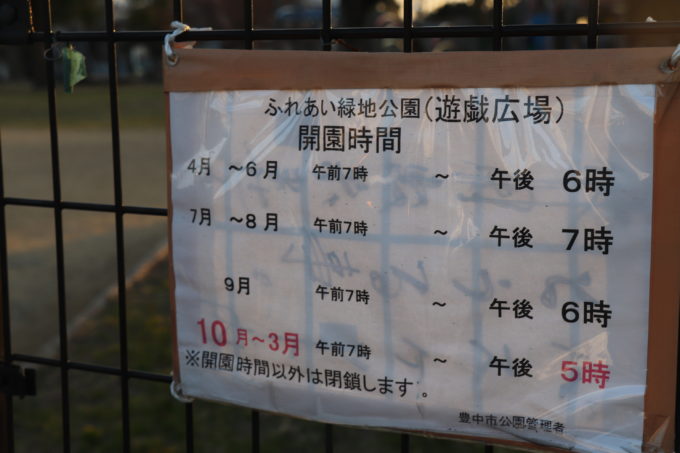 ふれあい緑地公園(遊戯広場)
開園時間
4月 ～6月 午前7時 ～ 午後 6時
7月 ～8月 午前7時 ～ 午後 7時
9月 午前7時 ～ 午後 6時
10月～3月 午前7時 ～ 午後 5時
※開園時間以外は閉鎖します。
豊中市公園管理者